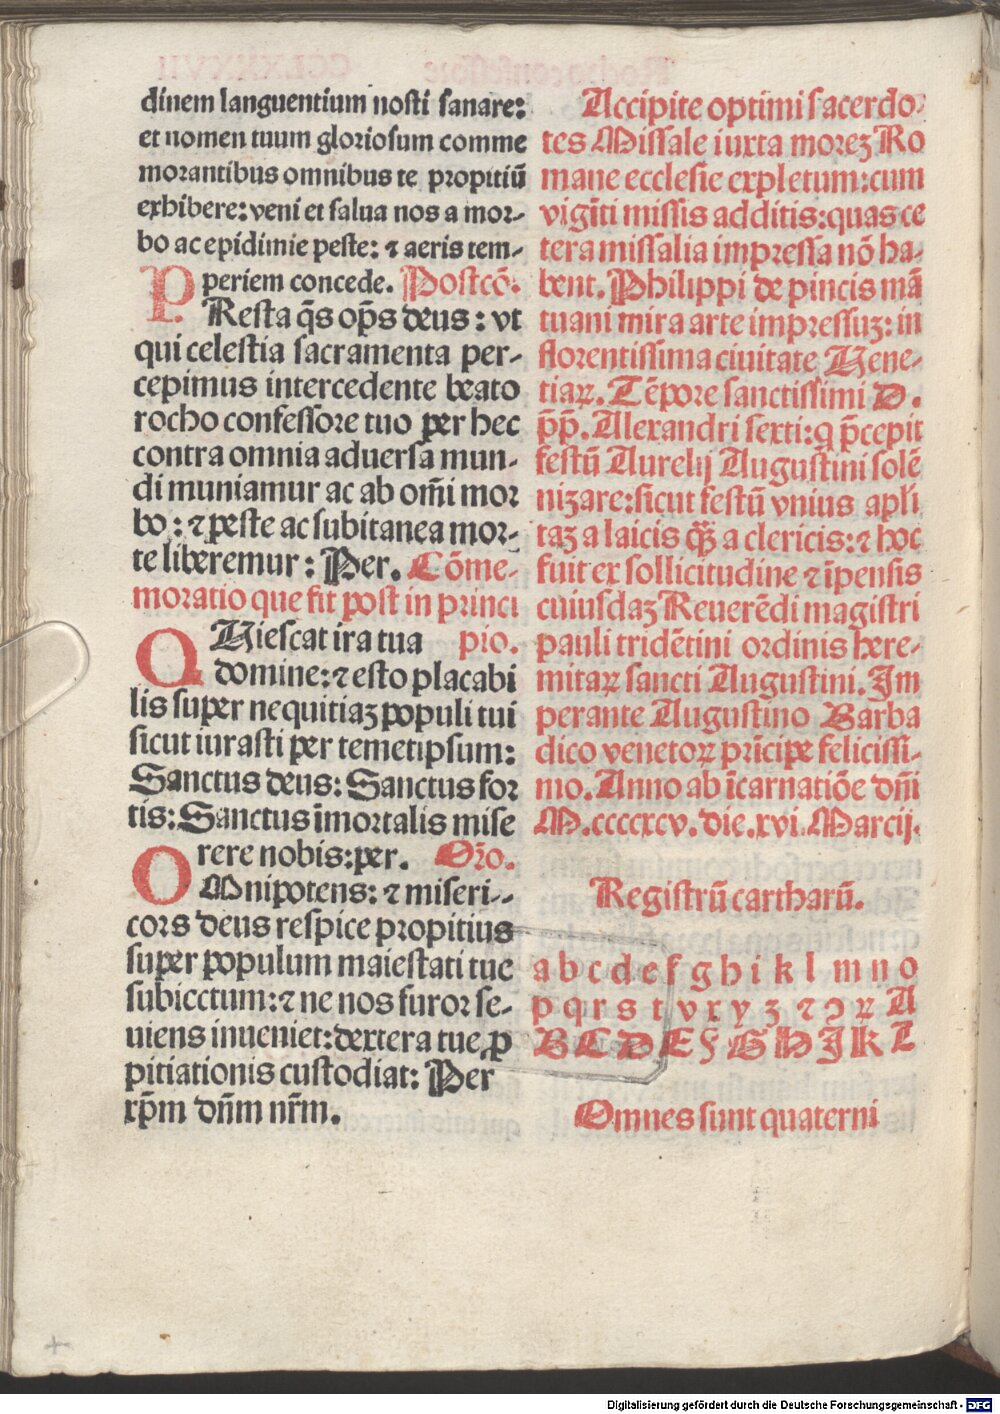 dinem languentium nosti sanare:
et nomen tuum gloriosum comme
morantibus omnibus te propitiū
exhibere: veni et salua nos a mor-
bo ac epidimie peste: ⁊ aeris tem-
periem concede. Postcō.
PResta q̄s op̄s deus: vt
qui celestia sacramenta per-
cepimus intercedente beato
rocho confessore tuo per hec
contra omnia aduersa mun-
di muniamur ac ab om̄i mor
bo: ⁊ peste ac subitanea mor-
te liberemur: Per. Cōme-
moratio que fit post in princi
pio.
QUiescat ira tua
domine: ⁊ esto placabi
lis super nequitiaꝫ populi tui
sicut iurasti per temetipsum:
Sanctus deus: Sanctus for
tis: Sanctus īmortalis mise
rere nobis: per. Oro.
OMnipotens: ⁊ miseri-
cors deus respice propitius
super populum maiestati tue
subiectum: ⁊ ne nos furor se-
uiens inueniet: dextera tue ꝓ
pitiationis custodiat: Per
xp̄m dn̄m nr̄m.
Accipite optimi sacerdo-
tes Missale iuxta moreꝫ Ro
mane ecclesie expletum: cum
viginti missis additis: quas ce
tera missalia impressa nō ha-
bent. Philippi de pincis mā
tuani mira arte impressuꝫ: in
florentissima ciuitate Uene-
tiaꝝ. Tēpore sanctissimi D.
p̄p̄. Alexandri sexti: q p̄cepit
festū Aurelij Augustini solē
nizare: sicut festū vnius apli
taꝫ a laicis qꝫ̄ a clericis: ⁊ hoc
fuit ex sollicitudine ⁊ īpensis
cuiusdaꝫ Reuerēdi magistri
pauli tridētini ordinis here-
mitaꝝ sancti Augustini. Im
perante Augustino Barba
dico venetoꝝ prīcipe felicissi-
mo. Anno ab īcarnatiōe dn̄i
M.ccccxcv. die. xvi. Marcij.
Registrū cartharū.
a b c d e f g h i k l m n o
p q r s t v x y z ⁊ ꝯ ꝝ A
B C D E F G H I K L
Omnes sunt quaterni
Digitalisierung gefördert durch die Deutsche Forschungsgemeinschaft - DFG